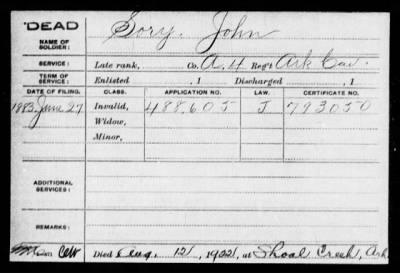 DEAD
NAME OF SOLDIER: Sory, John
SERVICE: Late rank, Co. A. 4 Reg't Ark Cav.
TERM OF SERVICE: Enlisted , 1 Discharged , 1
DATE OF FILING. CLASS. APPLICATION NO. LAW. CERTIFICATE NO.
1883 June 27 Invalid, 488.605 J 793050
Widow,
Minor,
ADDITIONAL SERVICES:
REMARKS:
Died Aug. 12, 1922, at Shoal Creek, Ark